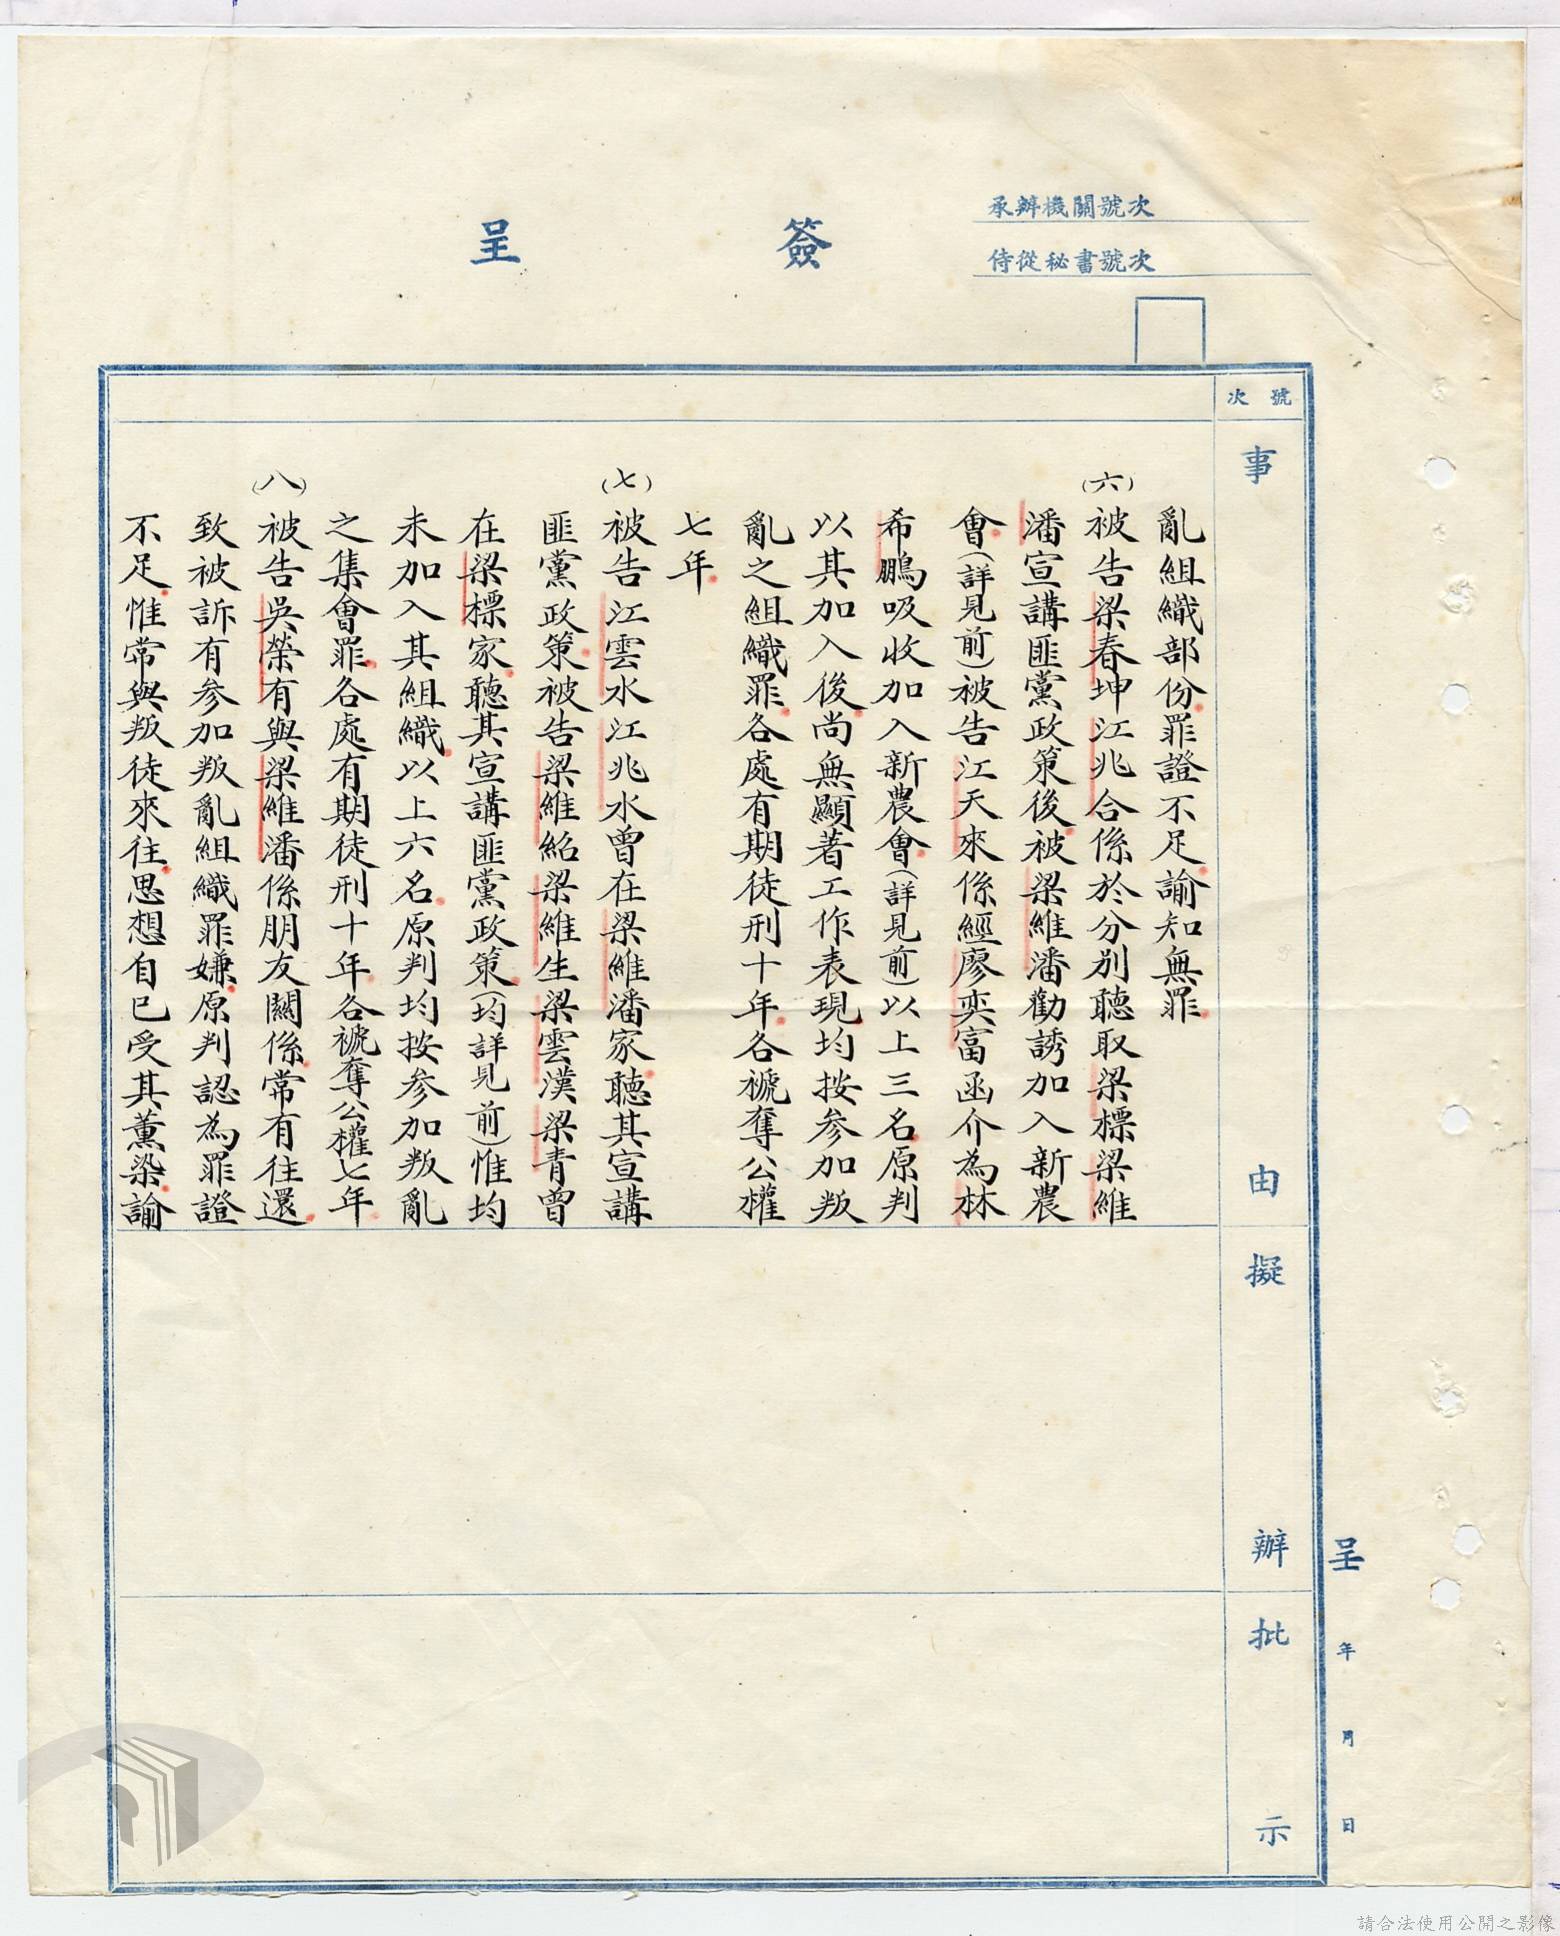 承辦機關號次
侍從秘書號次
簽呈
號次
事由
擬辦
批示
呈
年月日
亂組織部份。罪證不足。諭知無罪。
(六)被告梁春坤江兆合係於分別聽取梁標梁維
潘宣講匪黨政策後。被梁維潘勸誘加入新農
會。(詳見前)被告江天來係經廖奕富函介為林
希鵬吸收加入新農會。(詳見前)以上三名。原判
以其加入後。尚無顯著工作表現。均按參加叛
亂之組織罪。各處有期徒刑十年。各褫奪公權
七年。
(七)被告江雲水江兆水曾在梁維潘家。聽其宣講
匪黨政策。被告梁維紹梁維生梁雲漢梁青曾
在梁標家。聽其宣講匪黨政策。(均詳見前)惟均
未加入其組織。以上六名。原判均按參加叛亂
之集會罪。各處有期徒刑十年。各褫奪公權七年。
(八)被告吳榮有與梁維潘係朋友關係。常有往還。
致被訴有參加叛亂組織罪嫌。原判認為罪證
不足。惟常與叛徒來往。思想自已受其薰染。諭
請合法使用公開之影像